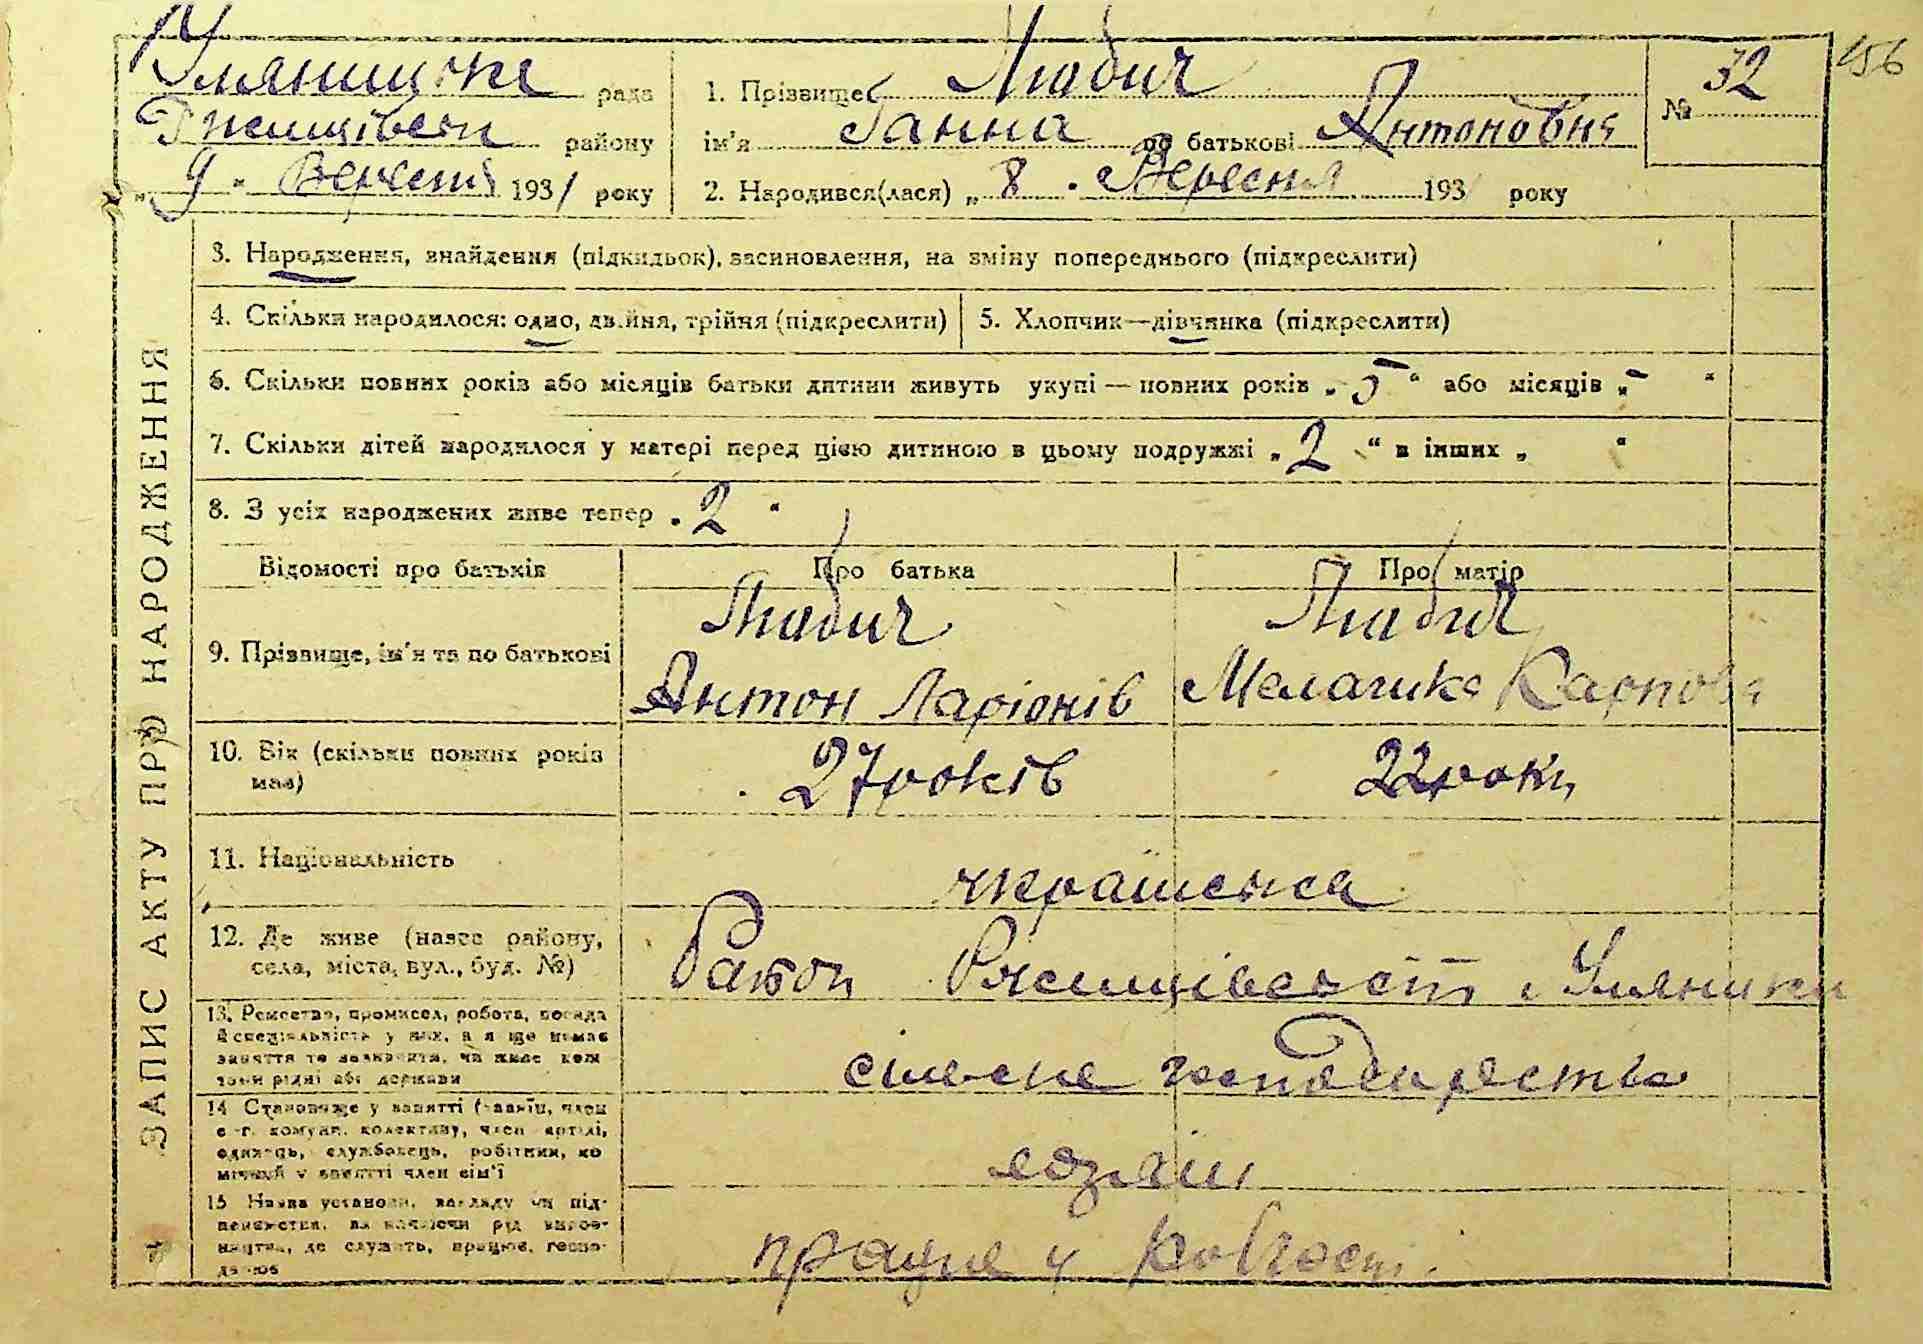 Уляницька рада
Ржищівськ району
„ 9 " Вересня 1931 року
1. Прізвище Любич
ім'я Ганна по батькові Антоновна
2. Народився(лася) „ 8 " Вересня 1931 року
№ 32
156
ЗАПИС АКТУ ПРО НАРОДЖЕННЯ
3. Народження, знайдення (підкидьок), засиновлення, на зміну попереднього (підкреслити)
4. Скільки народилося: одно, двійня, трійня (підкреслити)
5. Хлопчик—дівчинка (підкреслити)
6. Скільки повних років або місяців батьки дитини живуть укупі — повних років „ 5 " або місяців „ - "
7. Скільки дітей народилося у матері перед цією дитиною в цьому подружжі „ 2 " в інших „ "
8. З усіх народжених живе тепер „ 2 "
Відомості про батьків
Про батька
Про матір
9. Прізвище, ім'я та по батькові
Любич
Антон Ларіонів
Любич
Карпова
10. Вік (скільки повних років
має)
27 років
22 роки
11. Національність
українська
12. Де живе (назва району,
села, міста, вул., буд. №)
Район Ржищівський Уляники
13. Ремество, промисел, робота, посада
й спеціяльність у них, а я що немає
заняття то зазначити, чи живе коштами рідні або держави
сільське господарство
14 Становище у занятті (хазяїн, член
с.-г. комуни, колективу, член артілі,
одинець, службовець, робітник, помічний у занятті член сім'ї
хозяїн
15 Назва установи, закладу чи підприємства, визначаючи рід виробництва, де служить, працює, господарює
працює у колгоспі.